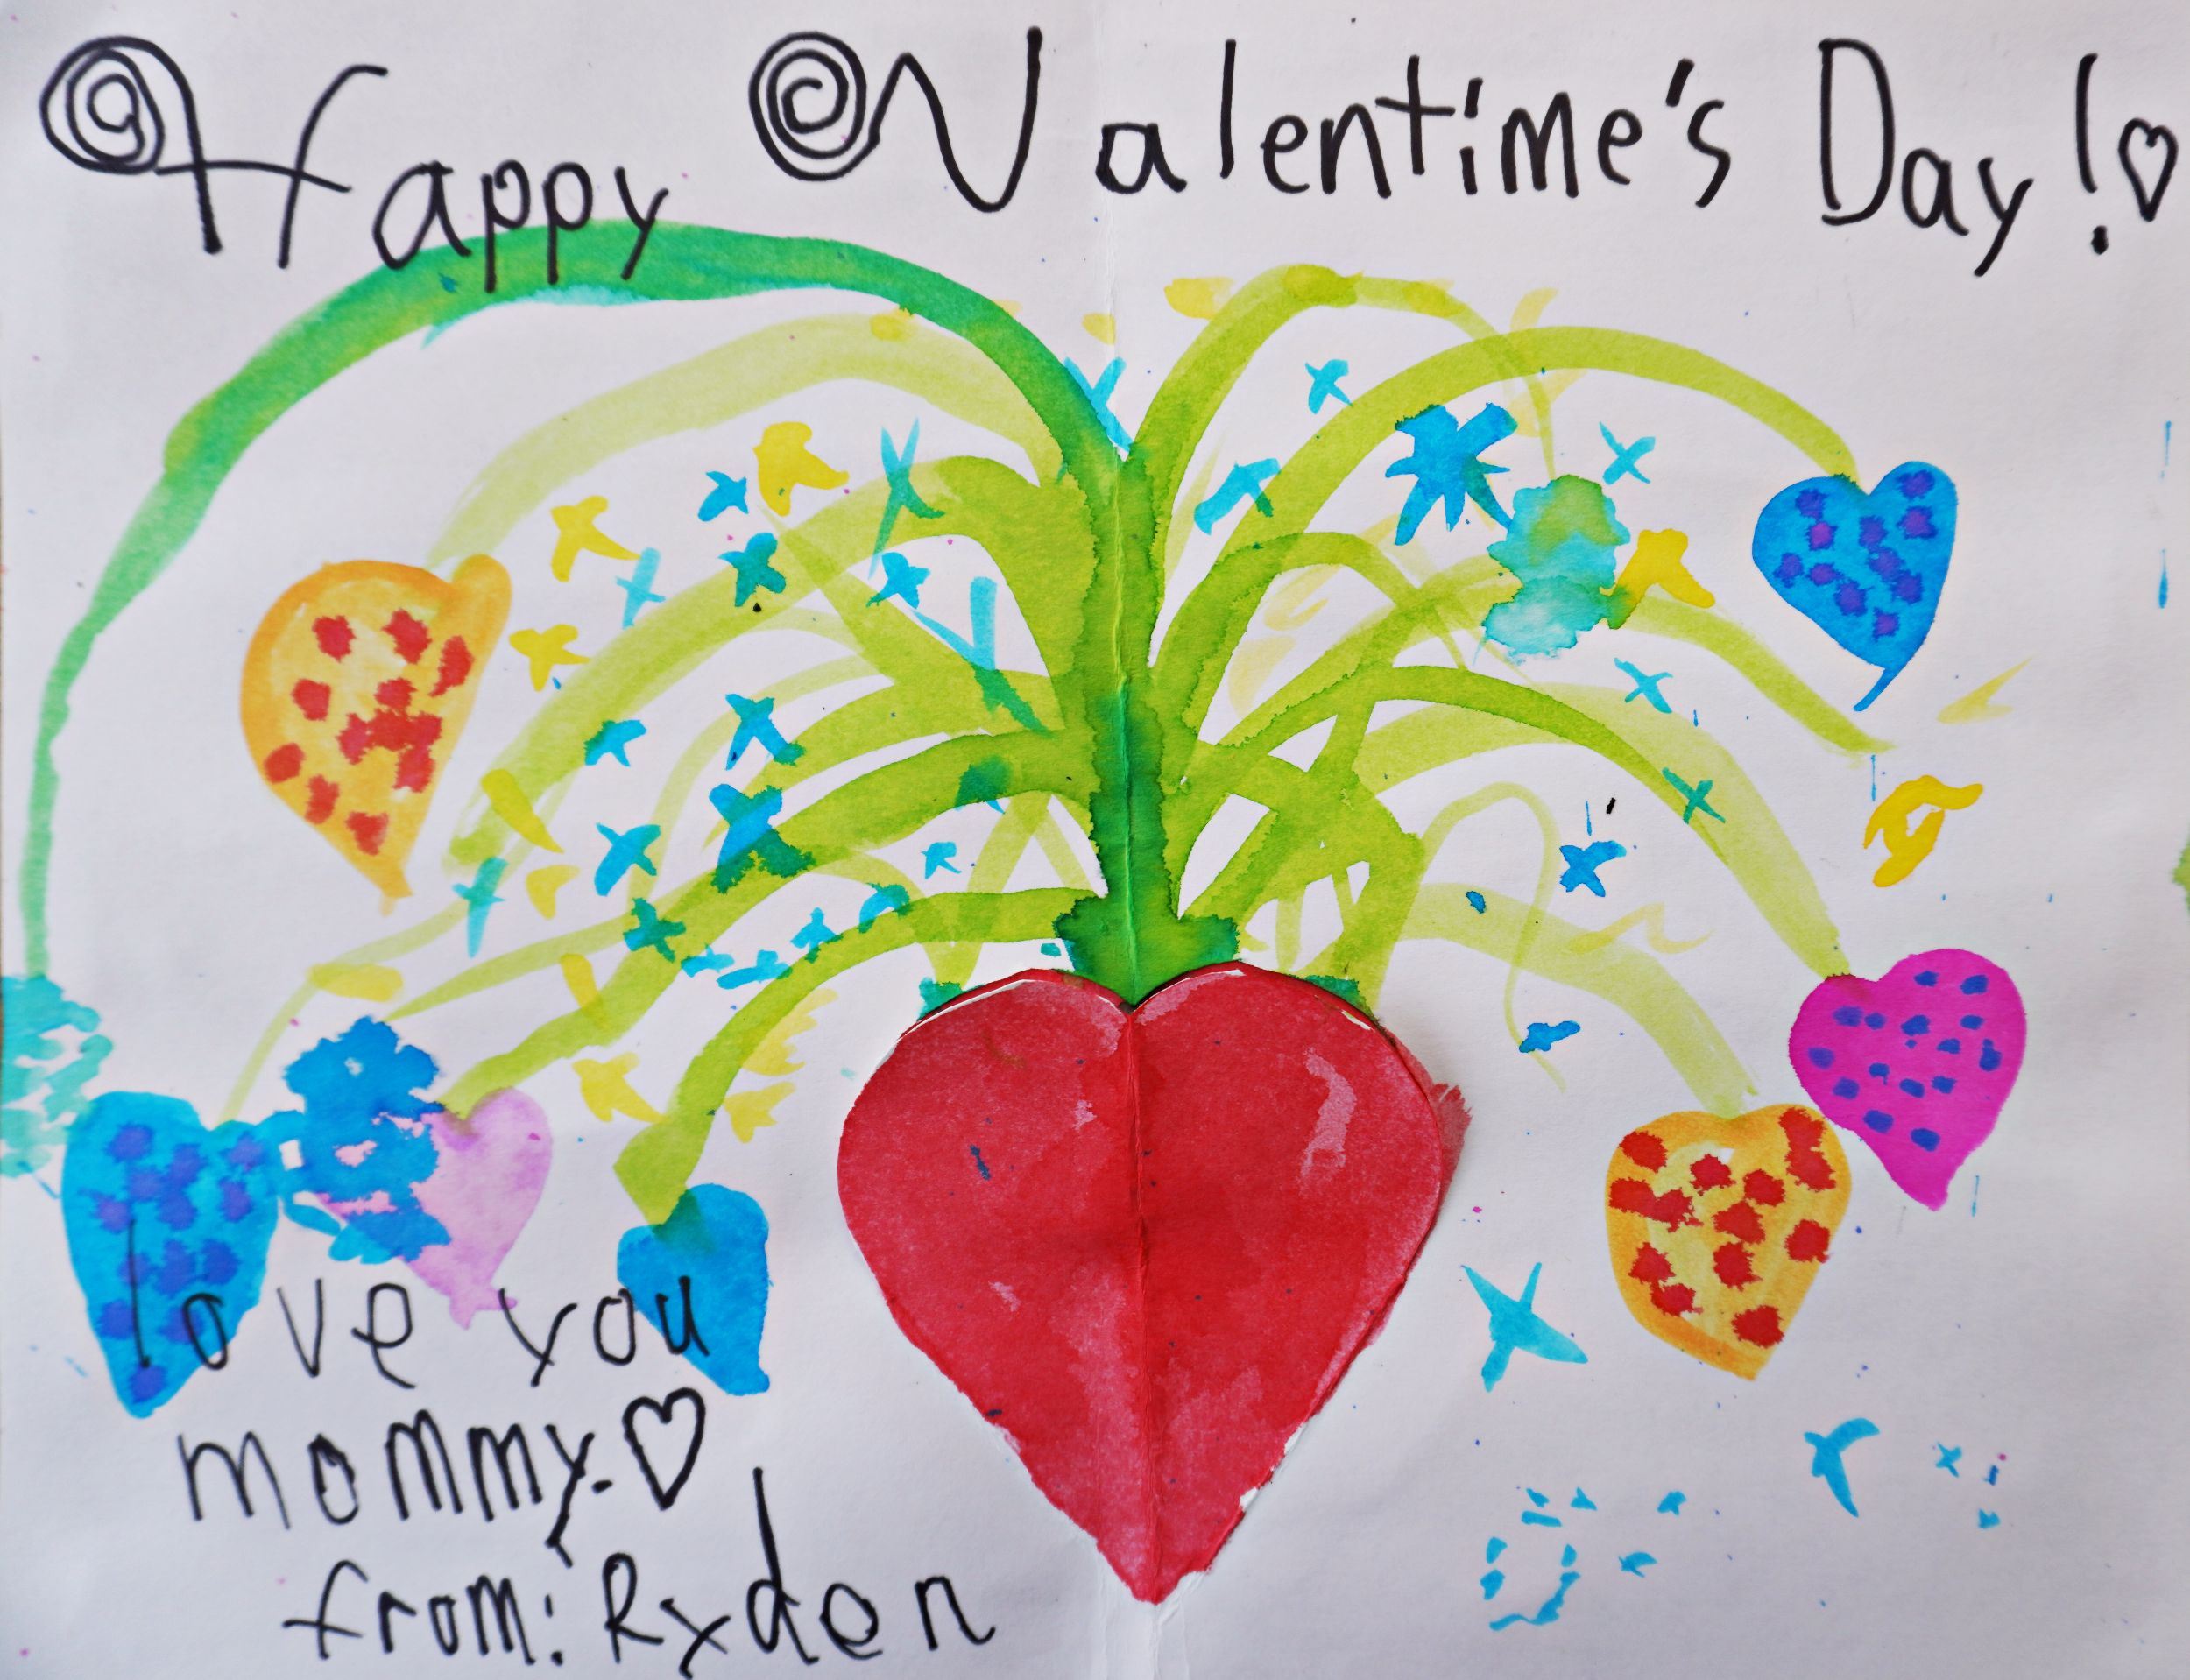 Happy Valentime's Day!♡
love you
mommy.♡
from: Ryden